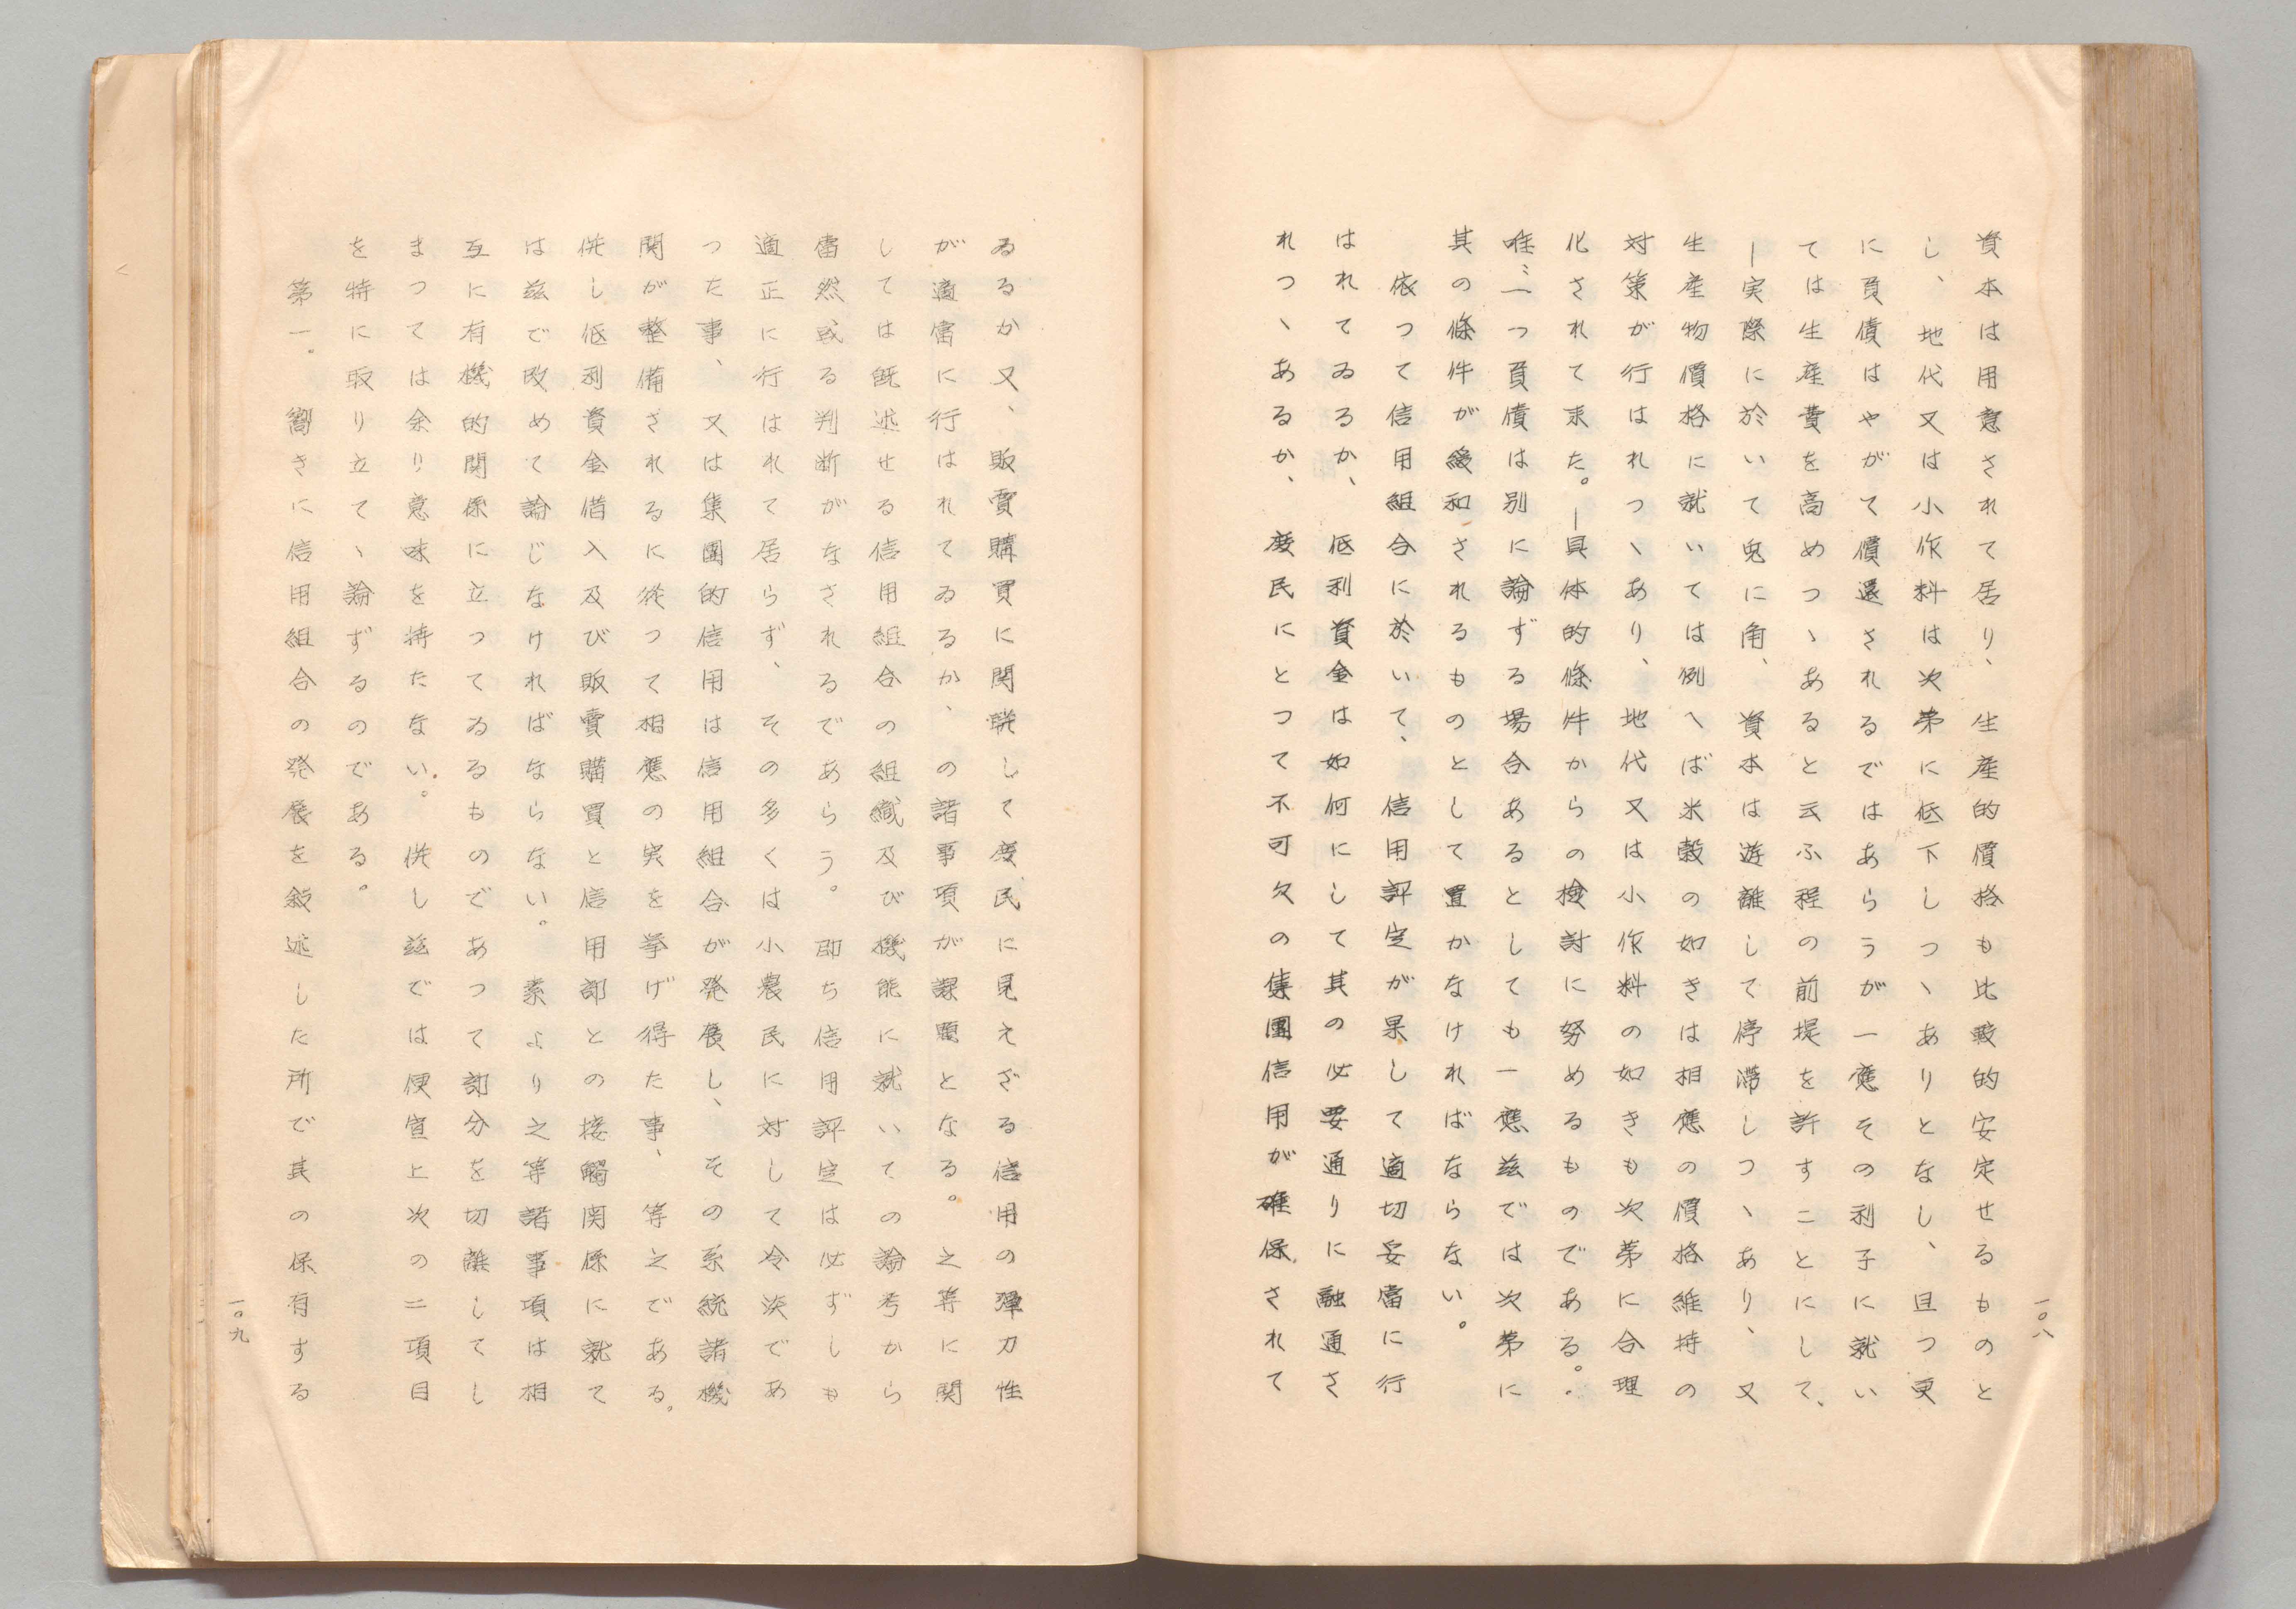 一〇八
資本は用意されて居り、生産的價格も比較的安定せるものと
し、地代又は小作料は次第に低下しつヽありとなし、且つ更
に負債はやがて償還されるではあらうが一應その利子に就い
ては生産費を高めつヽあると云ふ程の前提を許すことにして、
―実際に於いて兎に角、資本は遊離して停滞しつヽあり、又
生産物價格に就いては例へば米穀の如きは相應の價格維持の
対策が行はれつヽあり、地代又は小作料の如きも次第に合理
化されて来た。―具体的條件からの検討に努めるものである。
唯〻一つ負債は別に論ずる場合あるとしても一應茲では次第に
其の條件が緩和されるものとして置かなければならない。
依つて信用組合に於いて、信用評定が果して適切妥當に行
はれてゐるか、低利資金は如何にして其の必要通りに融通さ
れつヽあるか、農民にとつて不可欠の集團信用が確保されて
ゐるか又、販賣購買に関聯して農民に見えざる信用の彈力性
が適當に行はれてゐるか、の諸事項が課題となる。之等に関
しては既述せる信用組合の組織及び機能に就いての論考から
當然或る判断がなされるであらう。即ち信用評定は必ずしも
適正に行はれて居らず、その多くは小農民に対して冷淡であ
つた事、又は集團的信用は信用組合が発展し、その系統諸機
関が整備されるに従つて相應の実を挙げ得た事、等之である。
併し低利資金借入及び販賣購買と信用部との接觸関係に就て
は茲で改めて論じなければならない。素より之等諸事項は相
互に有機的関係に立つてゐるものであつて部分を切離してし
まつては余り意味を持たない。併し茲では便宜上次の二項目
を特に取り立てヽ論ずるのである。
第一。嚮きに信用組合の発展を敍述した所で其の保有する
一〇九